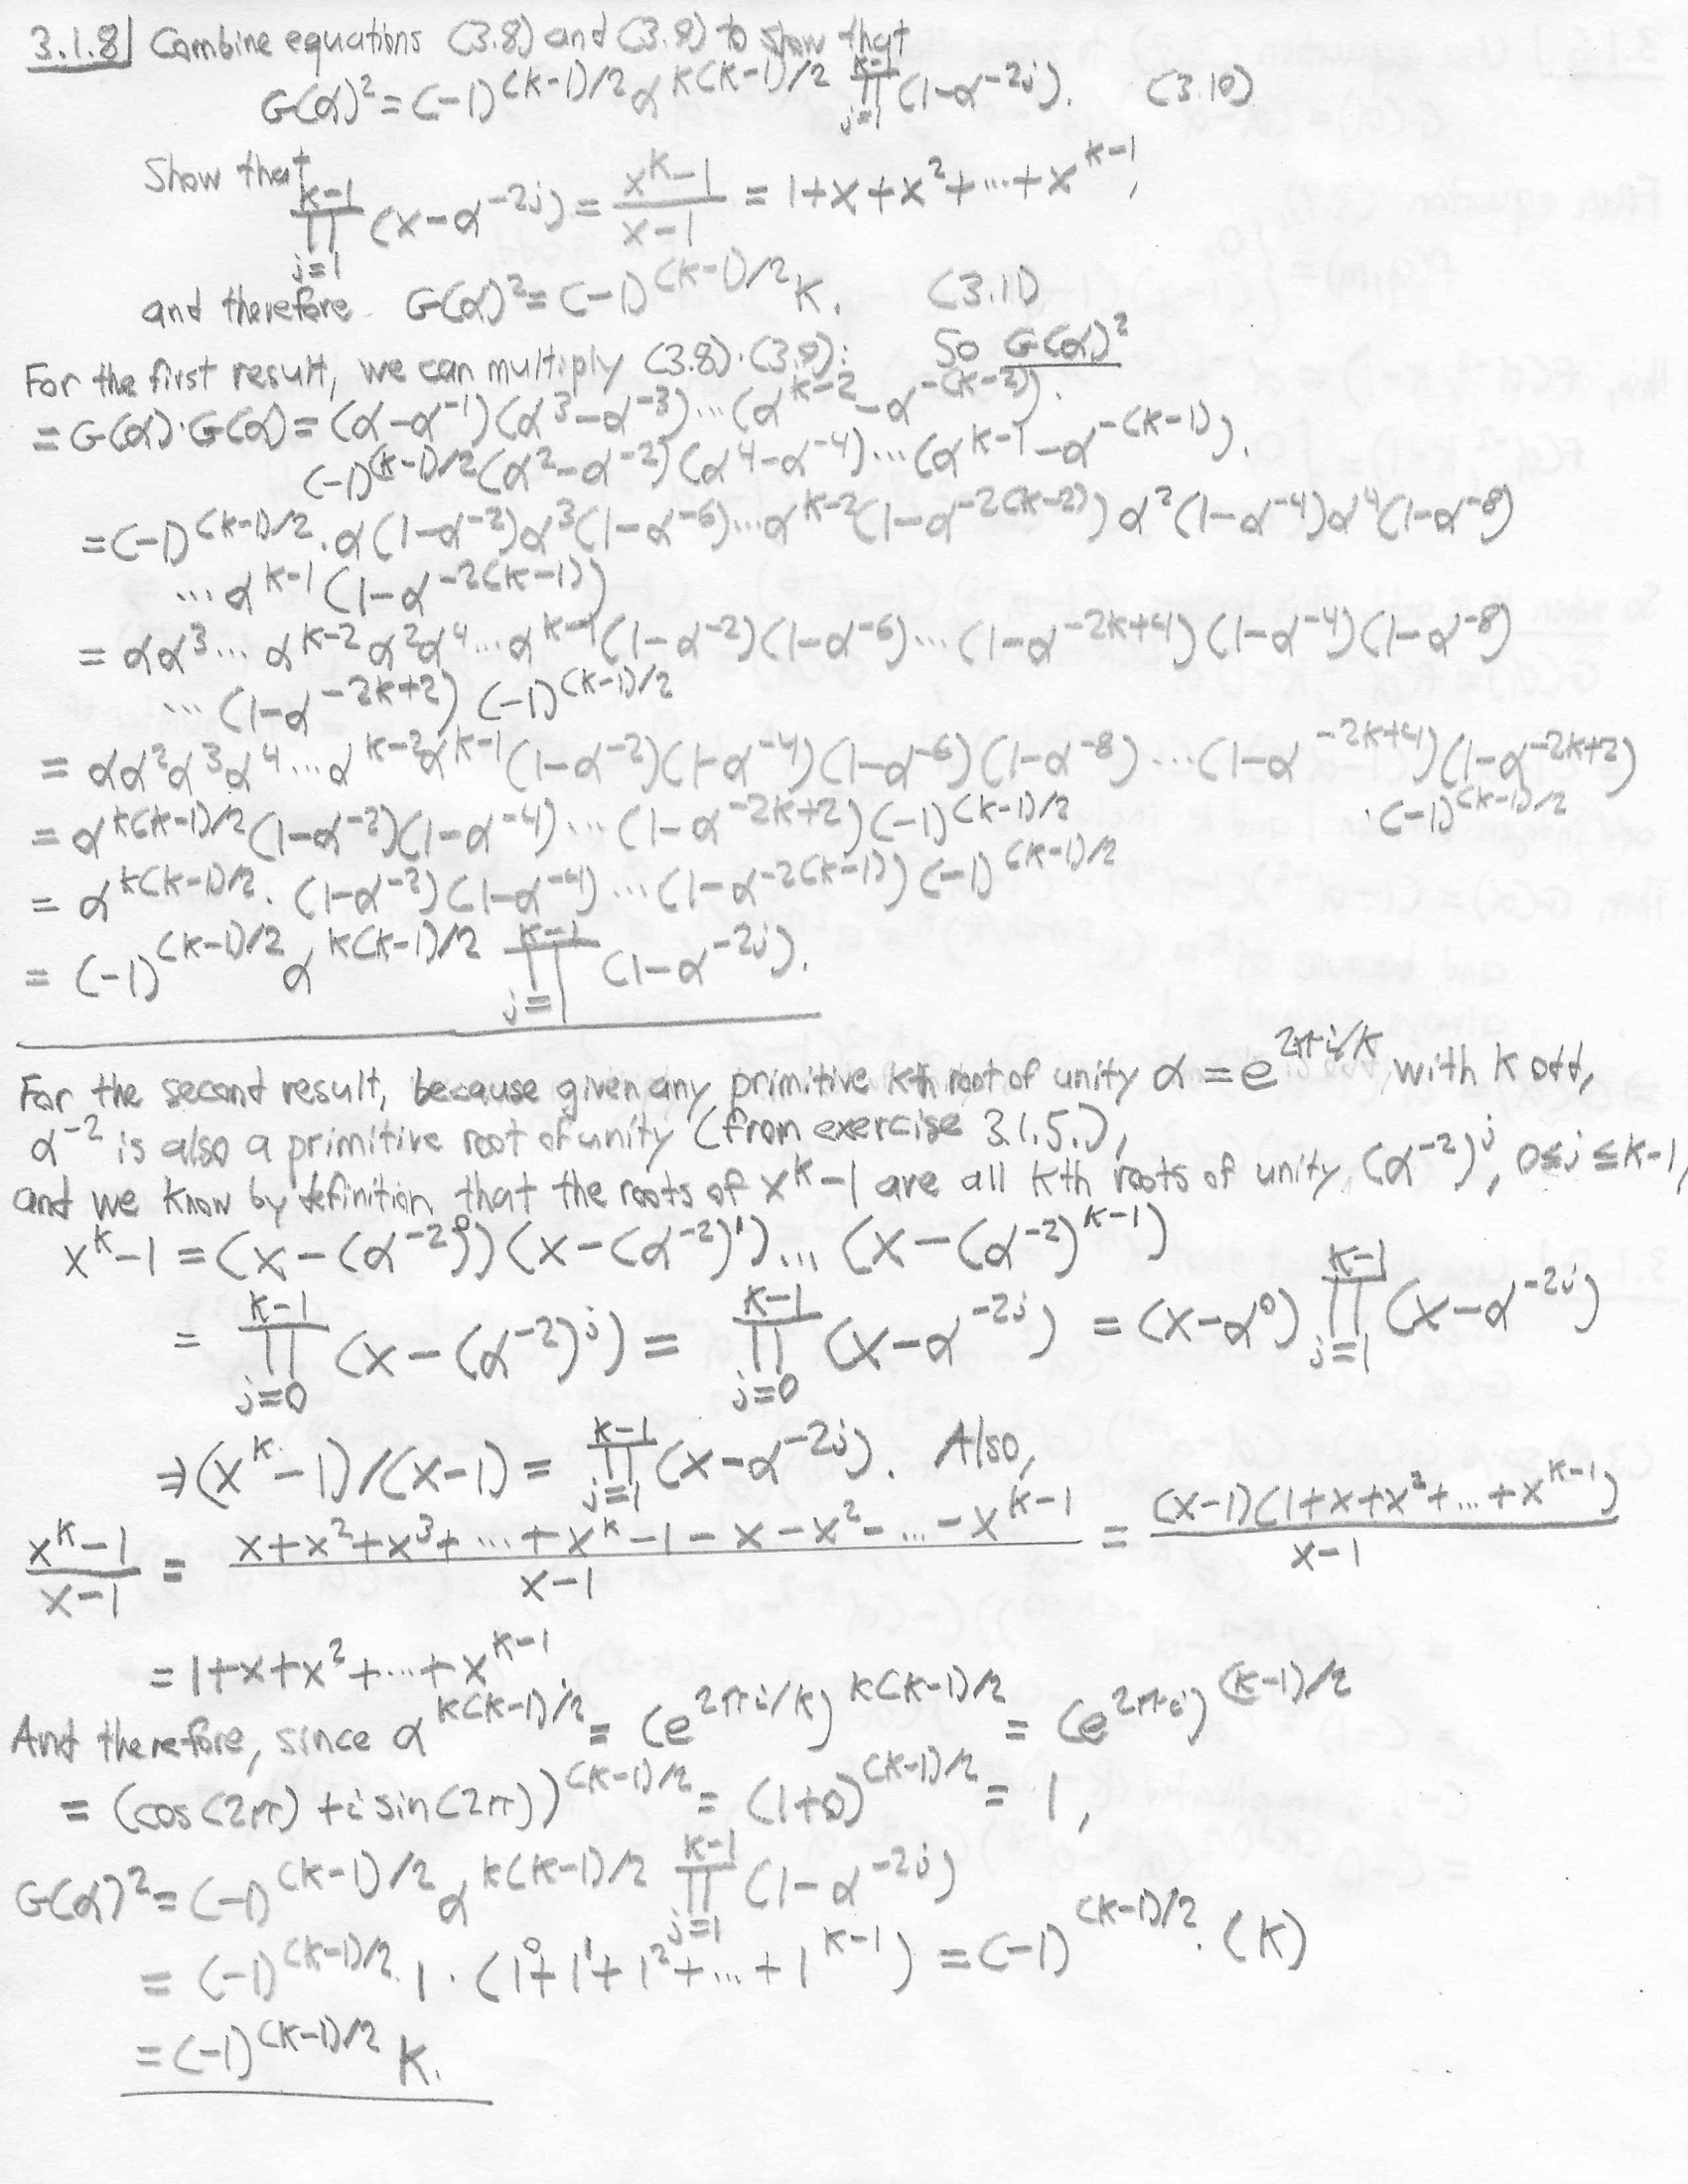 3.1.8| Combine equations (3.8) and (3.9) to show that
G(α)² = (-1)^{(k-1)/2} α^{k(k-1)/2} ∏_{j=1}^{k-1} (1-α^{-2j}). (3.10)
Show that
∏_{j=1}^{k-1} (x-α^{-2j}) = \frac{x^k-1}{x-1} = 1+x+x²+...+x^{k-1},
and therefore G(α)² = (-1)^{(k-1)/2} k. (3.11)
For the first result, we can multiply (3.8)·(3.9): So G(α)²
= G(α)·G(α) = (α-α^{-1})(α³-α^{-3})...(α^{k-2}-α^{-(k-2)}).
(-1)^{(k-1)/2}(α²-α^{-2})(α⁴-α^{-4})...(α^{k-1}-α^{-(k-1)}).
= (-1)^{(k-1)/2}·α(1-α^{-2})α³(1-α^{-6})...α^{k-2}(1-α^{-2(k-2)})α²(1-α^{-4})α⁴(1-α^{-8})
...α^{k-1}(1-α^{-2(k-1)})
= αα³...α^{k-2}α²α⁴...α^{k-1}(1-α^{-2})(1-α^{-6})...(1-α^{-2k+4})(1-α^{-4})(1-α^{-8})
...(1-α^{-2k+2})(-1)^{(k-1)/2}
= αα²α³α⁴...α^{k-2}α^{k-1}(1-α^{-2})(1-α^{-4})(1-α^{-6})(1-α^{-8})...(1-α^{-2k+4})(1-α^{-2k+2})
·(-1)^{(k-1)/2}
= α^{k(k-1)/2}(1-α^{-2})(1-α^{-4})...(1-α^{-2k+2})(-1)^{(k-1)/2}
= α^{k(k-1)/2}·(1-α^{-2})(1-α^{-4})...(1-α^{-2(k-1)})(-1)^{(k-1)/2}
= (-1)^{(k-1)/2} α^{k(k-1)/2} ∏_{j=1}^{k-1} (1-α^{-2j}).
For the second result, because given any primitive kth root of unity α = e^{2πi/k} with k odd,
α^{-2} is also a primitive root of unity (from exercise 3.1.5.),
and we know by definition that the roots of x^k-1 are all kth roots of unity (α^{-2})^j, 0≤j≤k-1,
x^k-1 = (x-(α^{-2})^0)(x-(α^{-2})^1)...(x-(α^{-2})^{k-1})
= ∏_{j=0}^{k-1} (x-(α^{-2})^j) = ∏_{j=0}^{k-1} (x-α^{-2j}) = (x-α^0) ∏_{j=1}^{k-1} (x-α^{-2j})
⇒ (x^k-1)/(x-1) = ∏_{j=1}^{k-1} (x-α^{-2j}). Also,
\frac{x^k-1}{x-1} = \frac{x+x²+x³+...+x^k-1-x-x²-...-x^{k-1}}{x-1} = \frac{(x-1)(1+x+x²+...+x^{k-1})}{x-1}
= 1+x+x²+...+x^{k-1}
And therefore, since α^{k(k-1)/2} = (e^{2πi/k})^{k(k-1)/2} = (e^{2πi})^{(k-1)/2}
= (cos(2π)+i sin(2π))^{(k-1)/2} = (1+0)^{(k-1)/2} = 1,
G(α)² = (-1)^{(k-1)/2} α^{k(k-1)/2} ∏_{j=1}^{k-1} (1-α^{-2j})
= (-1)^{(k-1)/2}·1·(1^0+1^1+1^2+...+1^{k-1}) = (-1)^{(k-1)/2}·(k)
= (-1)^{(k-1)/2} k.